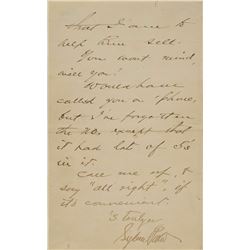 that I am to
help him sell.
You wont mind,
will you?
Would have
called you on 'phone,
but I've forgotten
the no. except that
it had lots of 5's
in it.
Call me up, &
say "all right", if
its convenient.
's truly